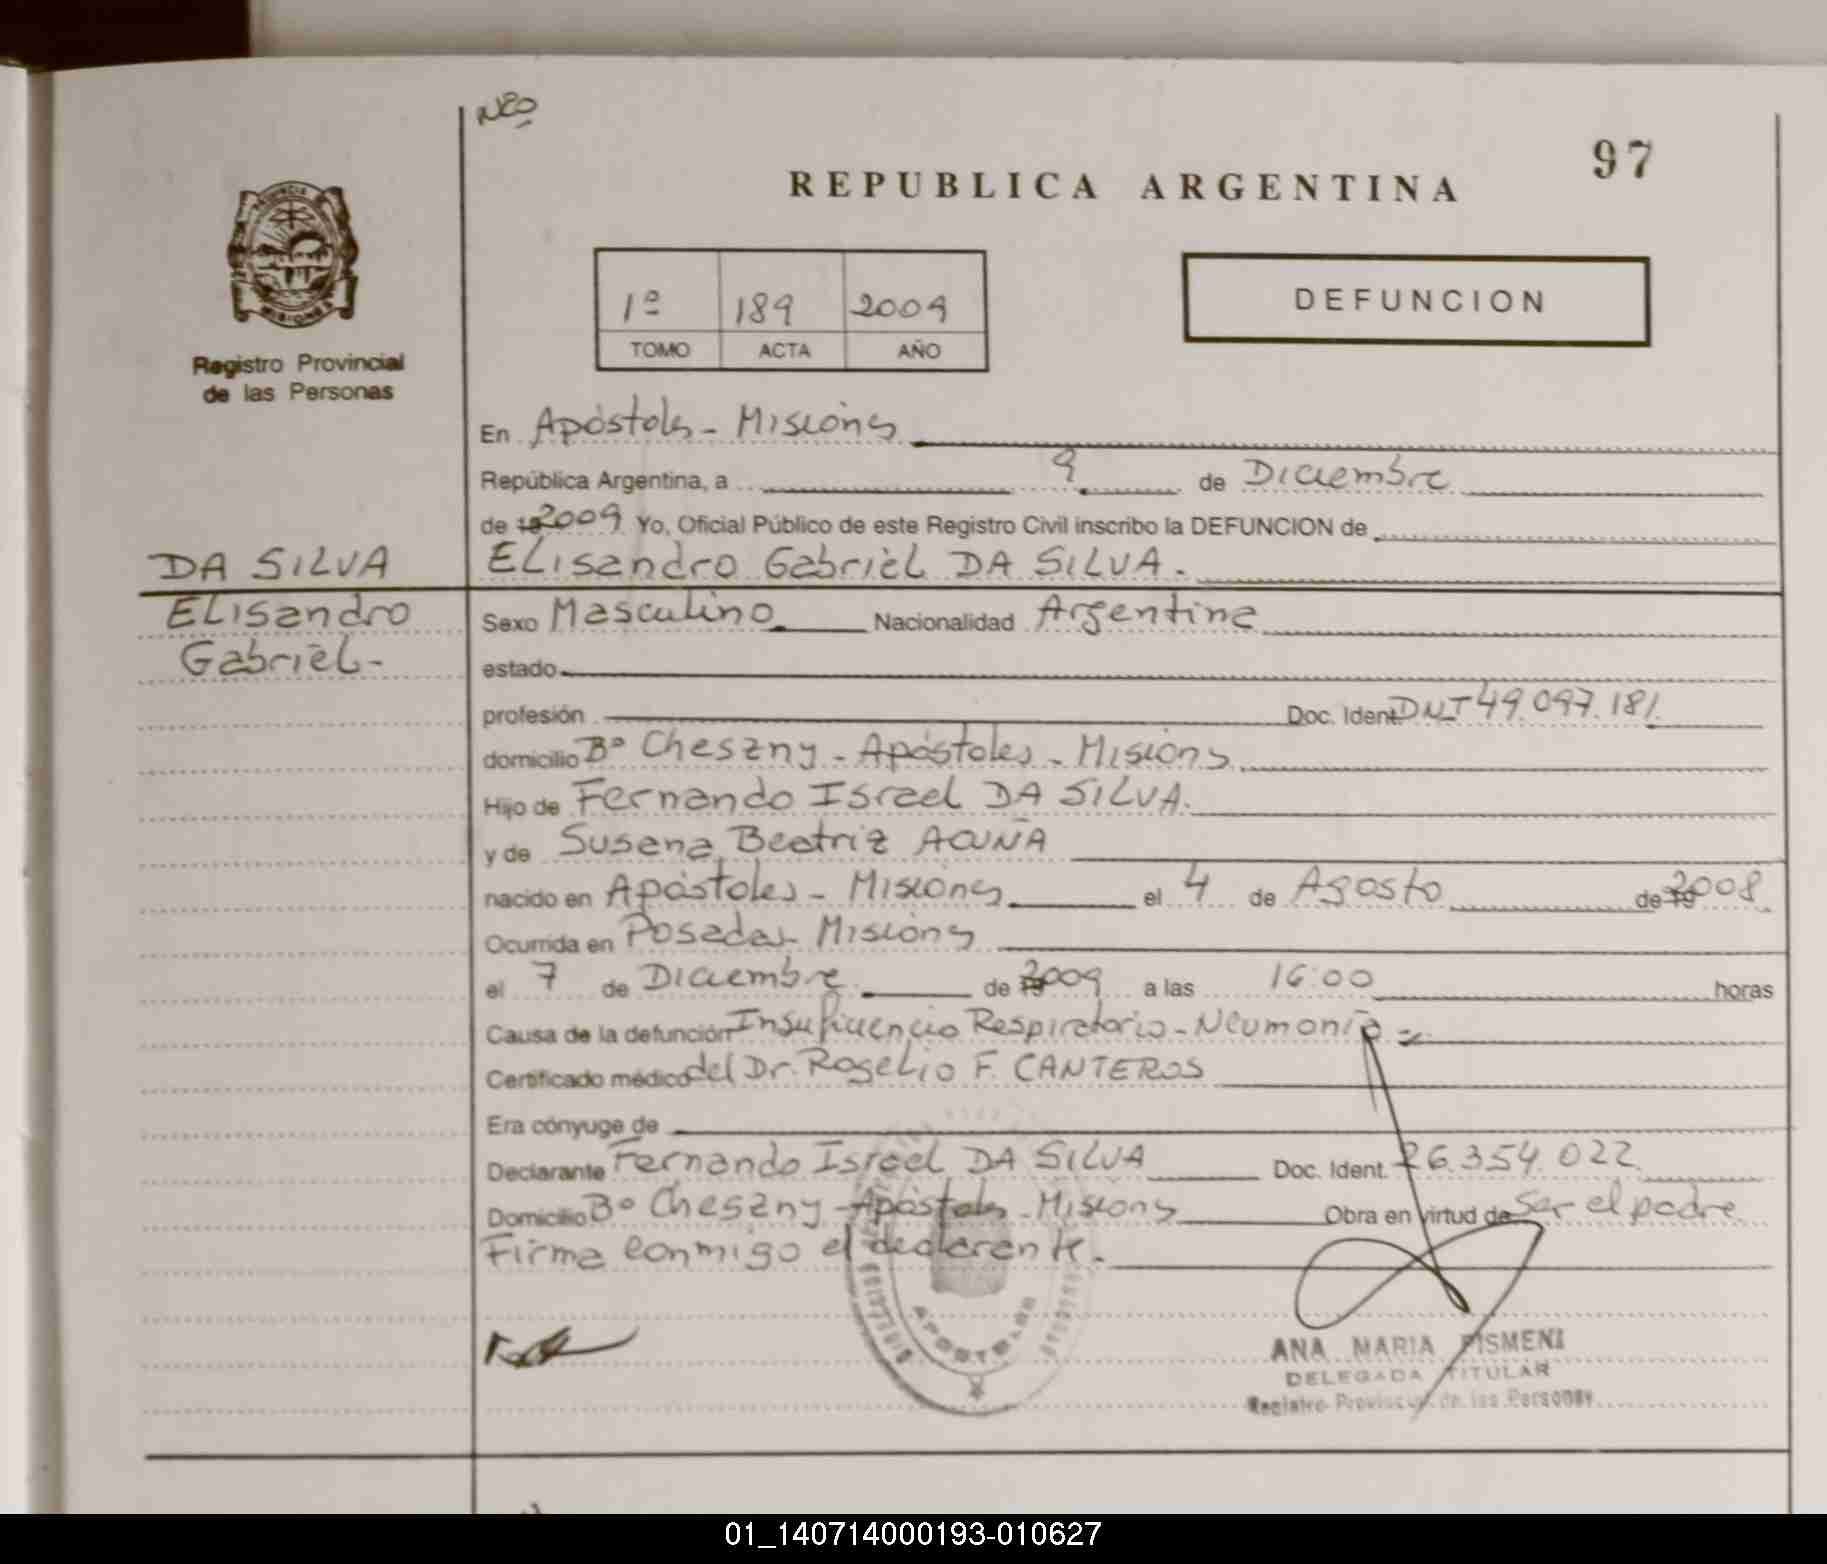 97
REPUBLICA ARGENTINA
1º 189 2009
TOMO ACTA AÑO
DEFUNCION
Registro Provincial
de las Personas
En Apóstoles - Misiones
República Argentina, a 9 de Diciembre
de 19 2009 Yo, Oficial Público de este Registro Civil inscribo la DEFUNCION de
DA SILVA
ELisandro Gabriel DA SILVA.
ELisandro
Gabriel-
Sexo Masculino Nacionalidad Argentina
estado
profesión Doc. Ident. DNI 49.097.181
domicilio Bº Cheszny - Apóstoles - Misiones
Hijo de Fernando Israel DA SILVA.
y de Susana Beatriz ACUÑA
nacido en Apóstoles - Misiones el 4 de Agosto de 19 2008
Ocurrida en Posadas Misiones
el 7 de Diciembre de 19 2009 a las 16:00 horas
Causa de la defunción Insuficiencia Respiratoria - Neumonía
Certificado médico del Dr. Rogelio F. CANTEROS
Era cónyuge de
Declarante Fernando Israel DA SILVA Doc. Ident. 26.354.022
Domicilio Bº Cheszny - Apóstoles - Misiones Obra en virtud de Ser el padre
Firma conmigo el declarante.
APOSTOLES
ANA MARIA PISMENI
DELEGADA TITULAR
Registro Provincial de las Personas
01_140714000193-010627